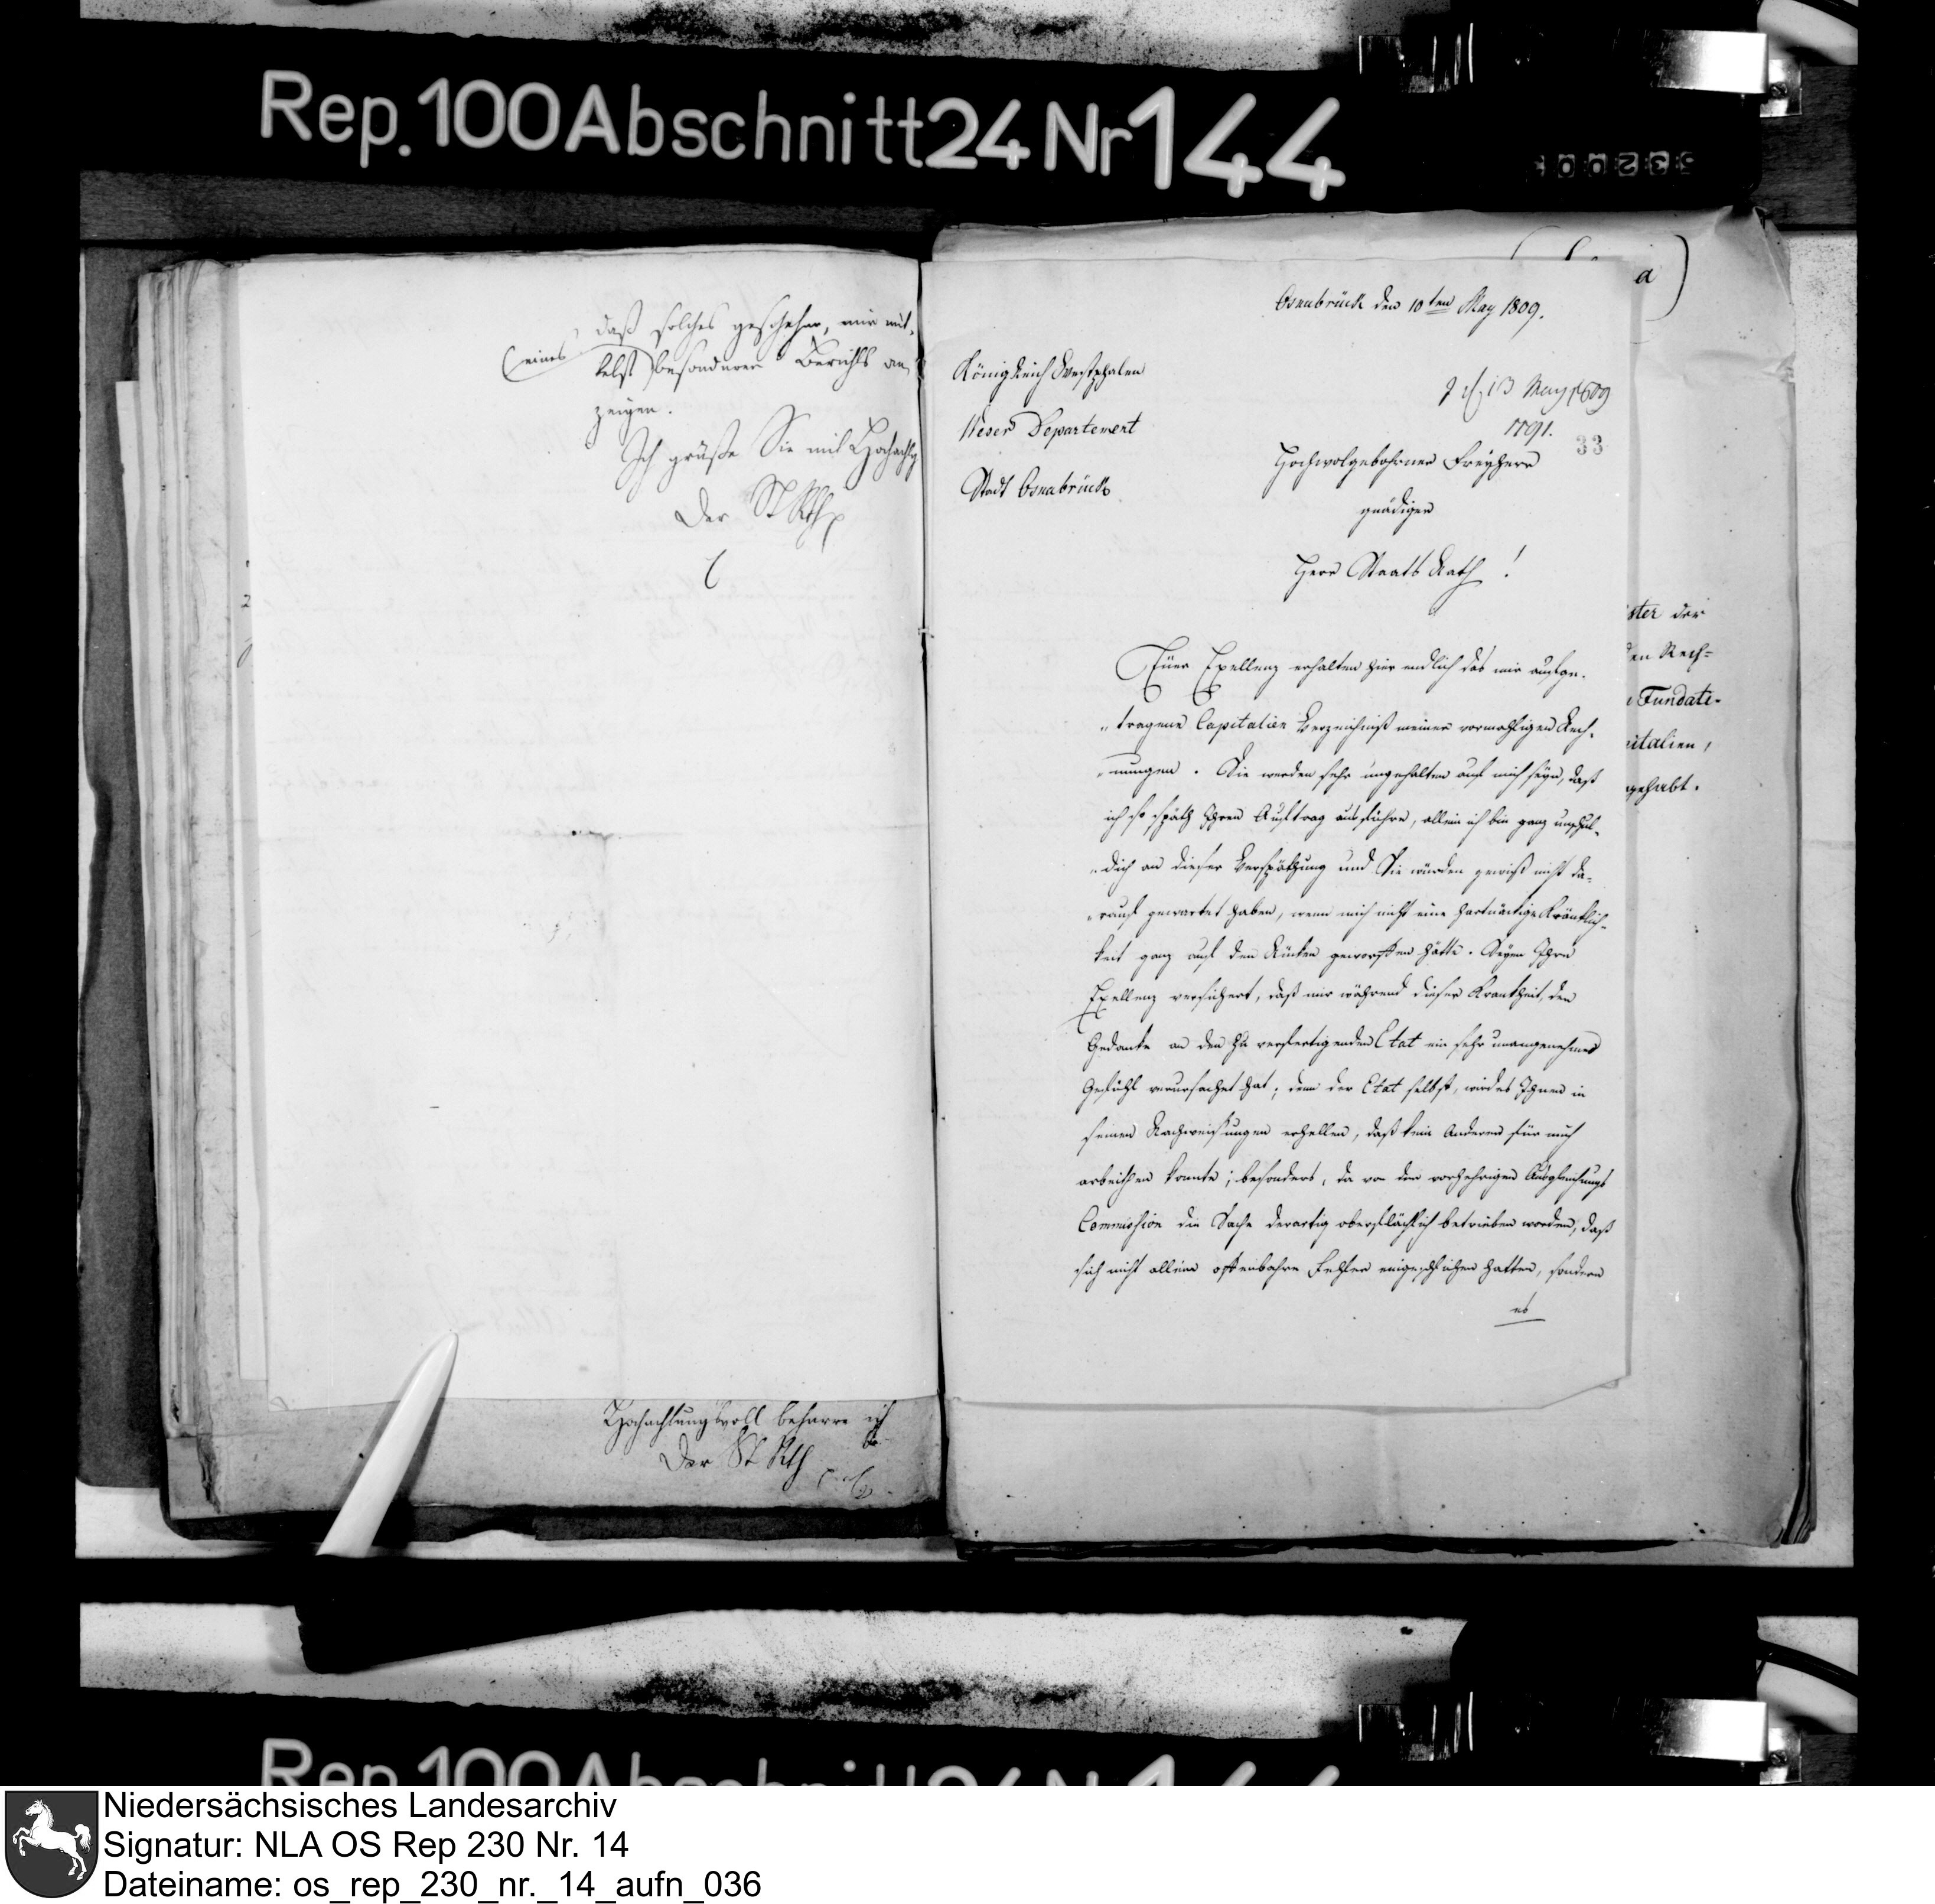 Rep. 100 Abschnitt 24 Nr 144
daß solches geschehen, mir mit-
(eines) telst besonderen Berichts an-
zeigen.
Ich grüße Sie mit Hochachtg
Der St Rth
Hochachtungsvoll beharre ich
Der St Rth
a)
Osnabrück den 10ten May 1809.
Königreich Westphalen
13 May 1809
1791.
Weser Departement
33
Hochwolgebohrner Freyherr
Stadt Osnabrück
gnädiger
Herr Staats Rath !
Euer Exellenz erhalten hier endlich das mir aufge-
"tragene Capitalien Verzeichniß meiner vormahligen Rech-
"nungen. Sie werden sehr ungehalten auf mich seyn, daß
ich so späth Ihren Auftrag ausführe, allein ich bin ganz unschul-
"dich an dieser Verspäthung und Sie würden gewiß nicht da-
"rauf gewartet haben, wenn mich nicht eine hartnäckige Kränklich-
keit ganz auf den Rücken geworffen hätte. Seyen Ihre
Exellenz versichert, daß mir während dieser Krankheit, der
Gedanke an den zu verfertigenden Etat ein sehr unangenehmes
Gefühl verursachet hat; denn der Etat selbst, wird es Ihnen in
seinen Nachweisungen erhellen, daß kein Anderer für mich
arbeithen konnte; besonders, da von der vorherigen Ausgleichungs
Commission die Sache derartig oberflächlich betrieben worden, daß
sich nicht alleine offenbahre Fehler eingeschlichen hatten, sondern
es
ster der
den Rech=
Fundati-
pitalien,
gehabt.
Rep. 100 Abschnitt 24 Nr 144
Niedersächsisches Landesarchiv
Signatur: NLA OS Rep 230 Nr. 14
Dateiname: os_rep_230_nr._14_aufn_036